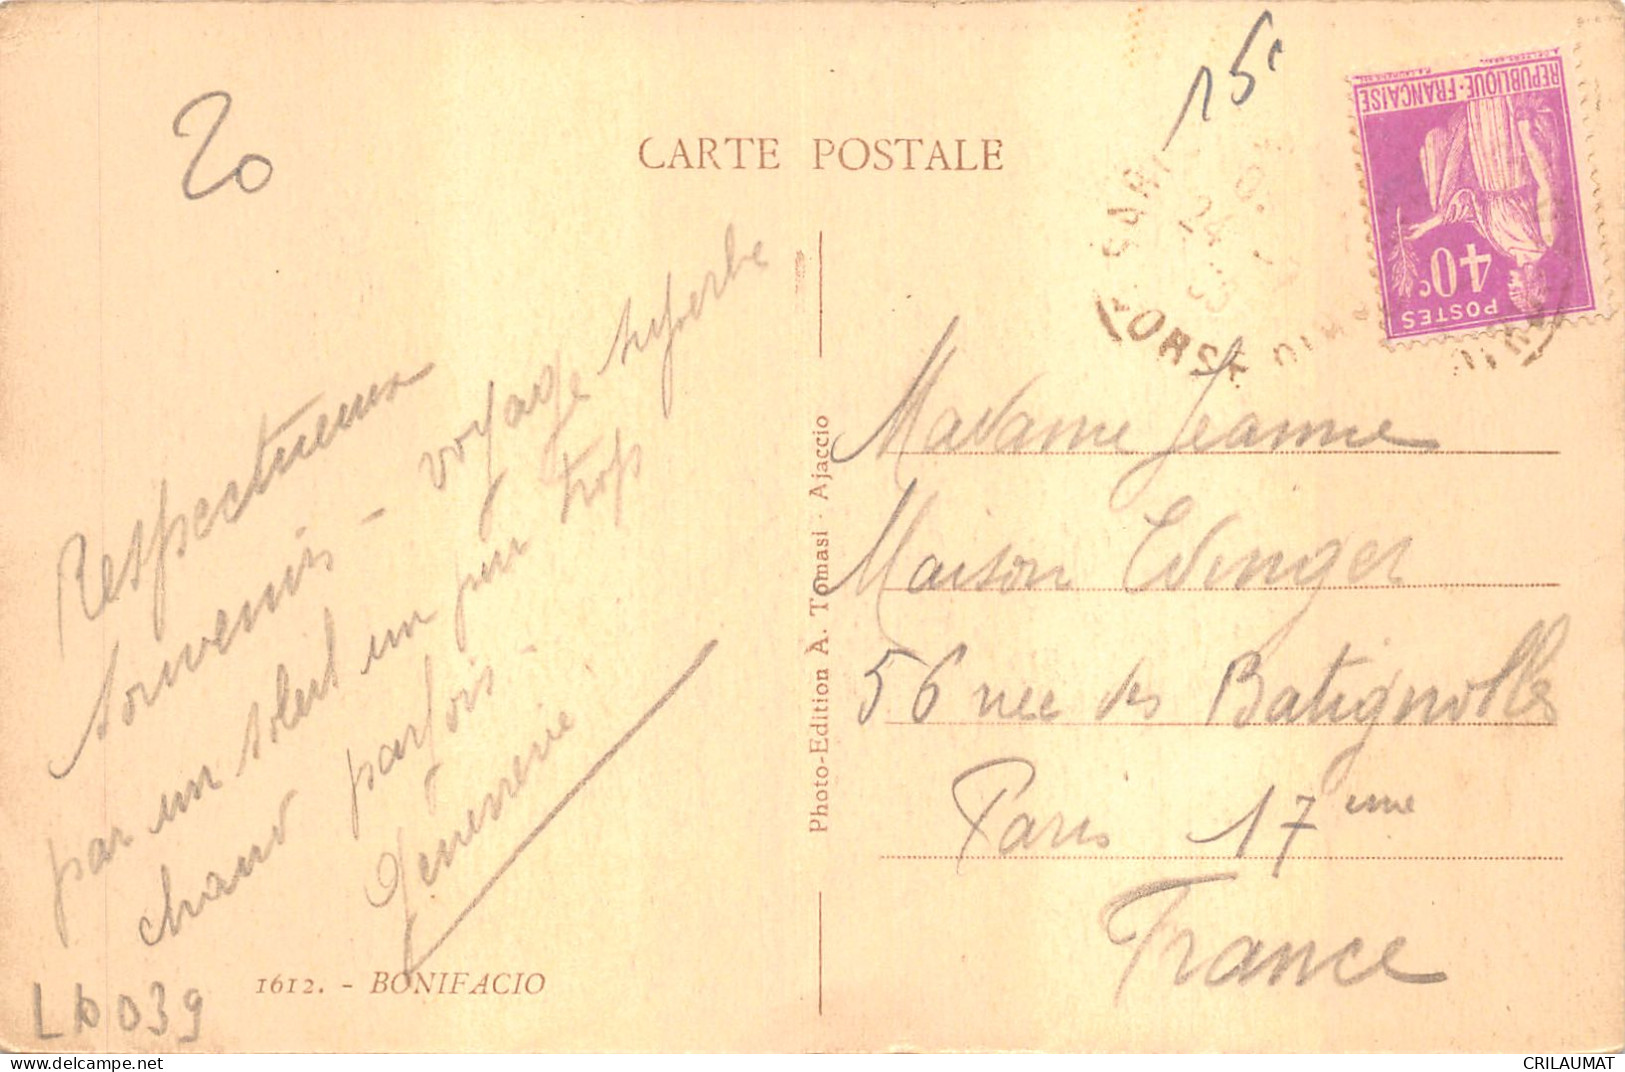 20
15c
CARTE POSTALE
REPUBLIQUE·FRANCAISE
40c
POSTES
24
CORSE
Respectueux
souvenirs - voyage superbe
par un soleil un peu trop
chaud parfois -
Geneviève
Photo-Edition A. Tomasi · Ajaccio
Madame Jeanne
Maison
56 rue des Batignolles
Paris 17eme
France
1612. - BONIFACIO
039
CRILAUMAT